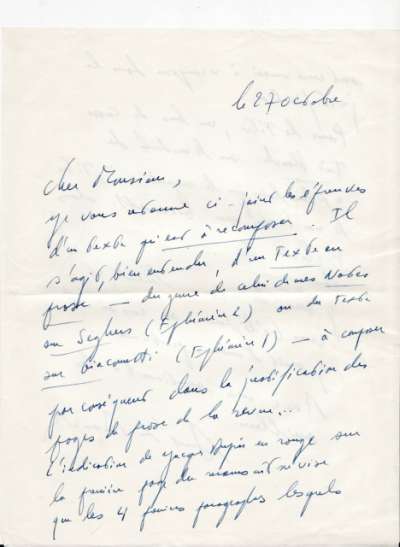 le 27 octobre
Cher Monsieur,
je vous retourne ci-joint les épreuves
d'un texte qui est à recomposer. Il
s'agit, bien entendu, d'un Texte en
prose — du genre de celui de mes Notes
sur Seghers (Ephémère 2) ou du Texte
sur Giacometti (Ephémère 1) — à composer
par conséquent dans la justification des
pages de prose de la revue...
L'indication de Jacques Dupin en rouge sur
la première page du manuscrit ne vise
que les 4 premiers paragraphes lesquels